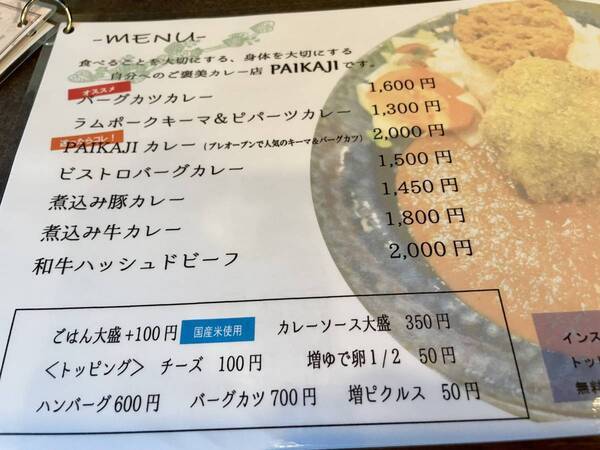 -MENU-
食べることを大切にする、身体を大切にする
自分へのご褒美カレー店 PAIKAJIです。
オススメ
バーグカツカレー 1,600円
ラムポークキーマ＆ピパーツカレー 1,300円
PAIKAJI カレー（プレオープンで人気のキーマ＆バーグカツ） 2,000円
ビストロバーグカレー 1,500円
煮込み豚カレー 1,450円
煮込み牛カレー 1,800円
和牛ハッシュドビーフ 2,000円
ごはん大盛+100円 国産米使用 カレーソース大盛 350円
＜トッピング＞ チーズ 100円 増ゆで卵1/2 50円
ハンバーグ600円 バーグカツ700円 増ピクルス 50円
インス
トッ
無料